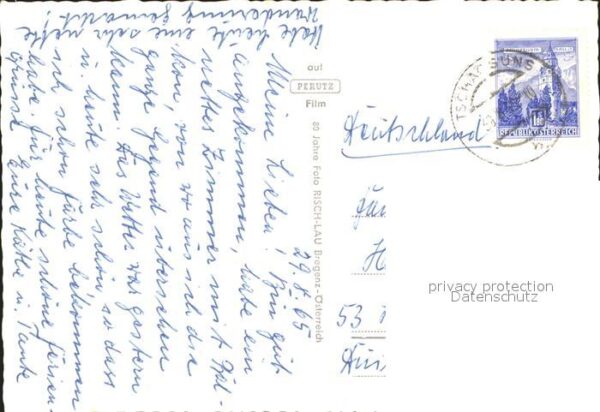 29.8.65
Meine Lieben! Bin gut
angekommen, habe ein
nettes Zimmer mit Bal-
kon, von wo aus ich die
ganze Gegend übersehen
kann. Das Wetter war gestern
u. heute sehr schön so das
ich schon Farbe bekommen
habe. Für heute schöne Ferien-
grüsse Eure Käthe u. Tante
Habe heute eine sehr nette
Wanderung gemacht!
auf
PERUTZ
Film
80 Jahre Foto RISCH-LAU Bregenz-Österreich
TSCHAGGUNS
REPUBLIK ÖSTERREICH
Deutschland
53
privacy protection
Datenschutz